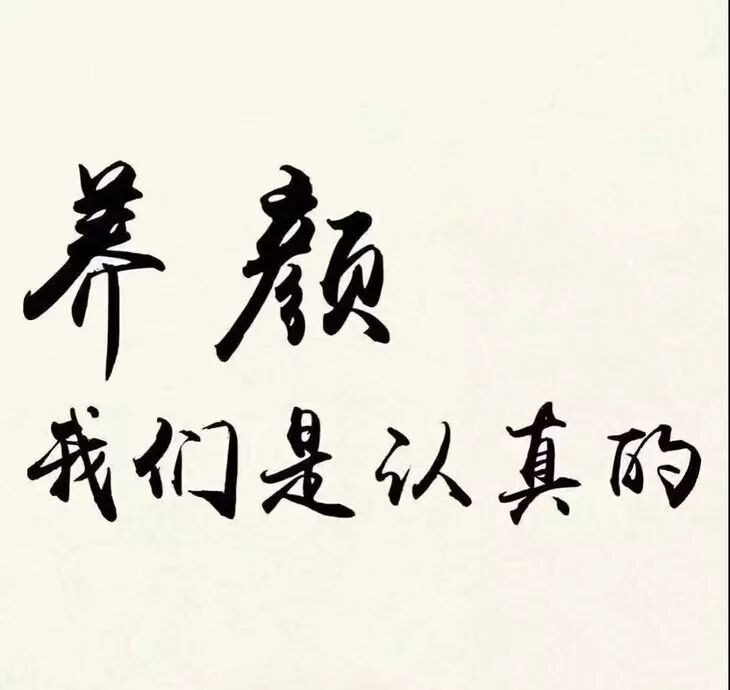 养颜
我们是认真的